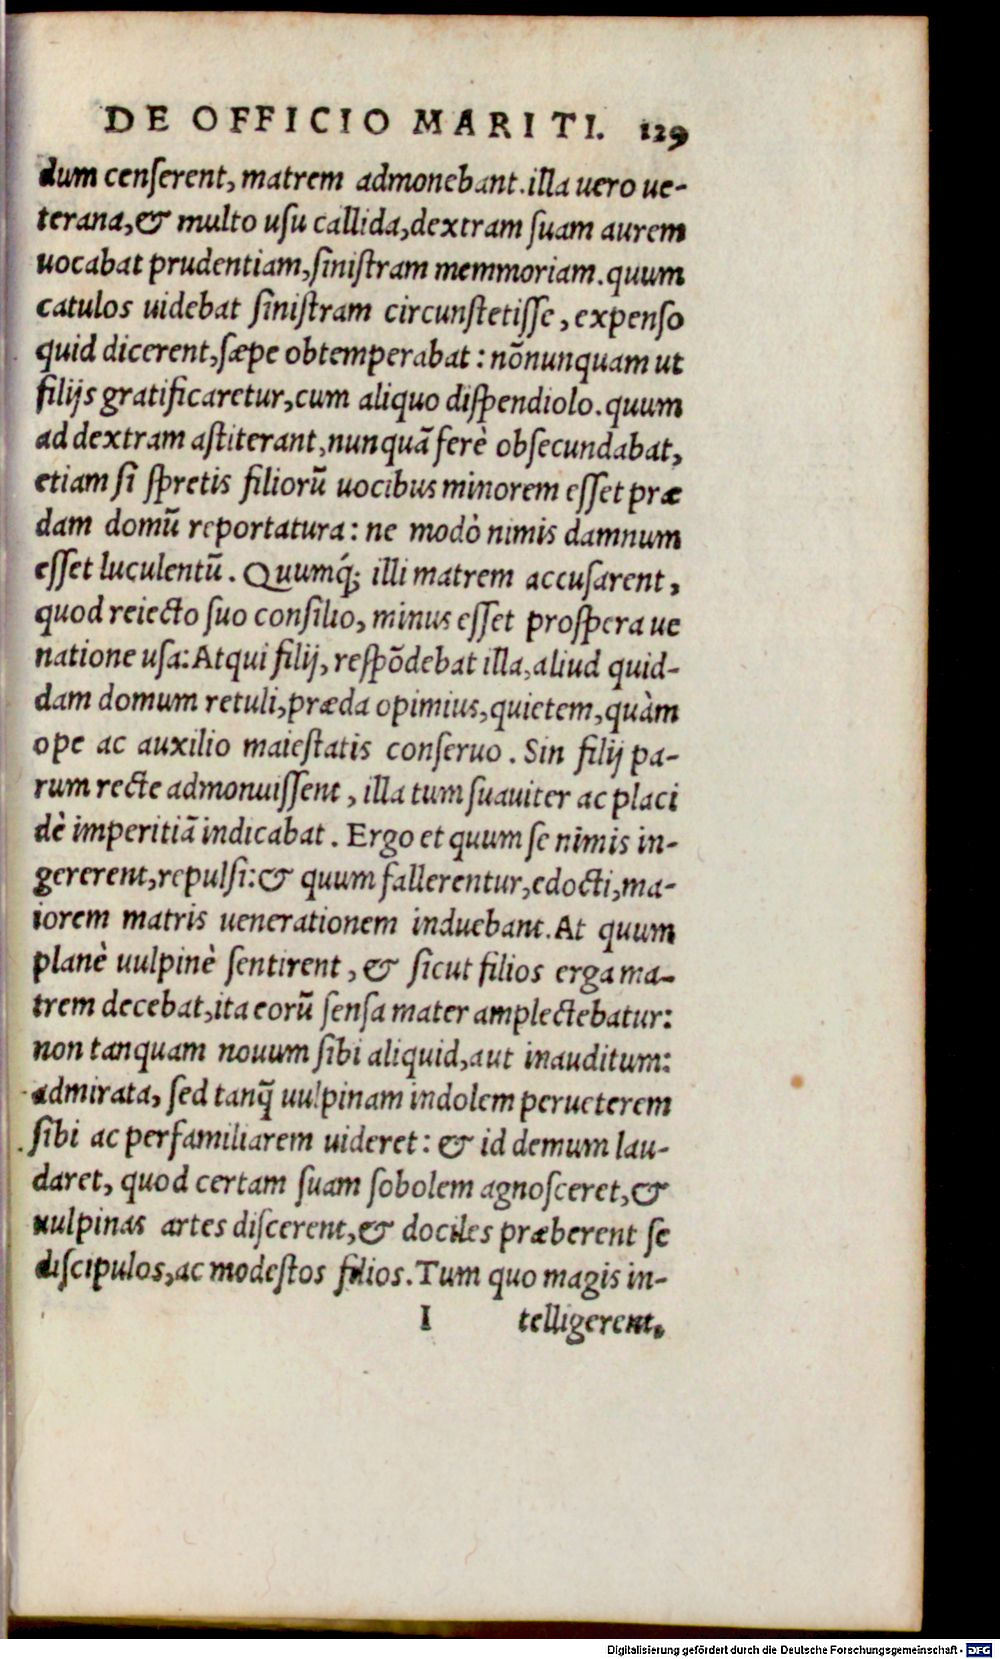 DE OFFICIO MARITI. 129
dum censerent, matrem admonebant. illa uero ue-
terana, & multo usu callida, dextram suam aurem
uocabat prudentiam, sinistram memmoriam. quum
catulos uidebat sinistram circunstetisse, expenso
quid dicerent, sæpe obtemperabat: nõnunquam ut
filijs gratificaretur, cum aliquo dispendiolo. quum
ad dextram astiterant, nunquã ferè obsecundabat,
etiam si spretis filiorũ uocibus minorem esset præ
dam domũ reportatura: ne modò nimis damnum
esset luculentũ. Quumq́; illi matrem accusarent,
quod reiecto suo consilio, minus esset prospera ue
natione usa: Atqui filij, respõdebat illa, aliud quid-
dam domum retuli, præda opimius, quietem, quàm
ope ac auxilio maiestatis conseruo. Sin filij pa-
rum recte admonuissent, illa tum suauiter ac placi
dè imperitiã indicabat. Ergo et quum se nimis in-
gererent, repulsi: & quum fallerentur, edocti, ma-
iorem matris uenerationem induebant. At quum
planè uulpinè sentirent, & sicut filios erga ma-
trem decebat, ita eorũ sensa mater amplectebatur:
non tanquam nouum sibi aliquid, aut inauditum:
admirata, sed tanq̃ uulpinam indolem perueterem
sibi ac perfamiliarem uideret: & id demum lau-
daret, quod certam suam sobolem agnosceret, &
uulpinas artes discerent, & dociles præberent se
discipulos, ac modestos filios. Tum quo magis in-
I telligerent,
Digitalisierung gefördert durch die Deutsche Forschungsgemeinschaft - DFG